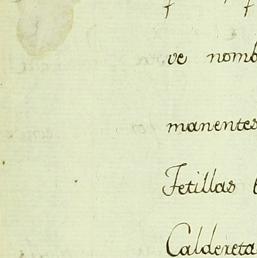 ve nomb
manentes
Fetillas
Caldereta